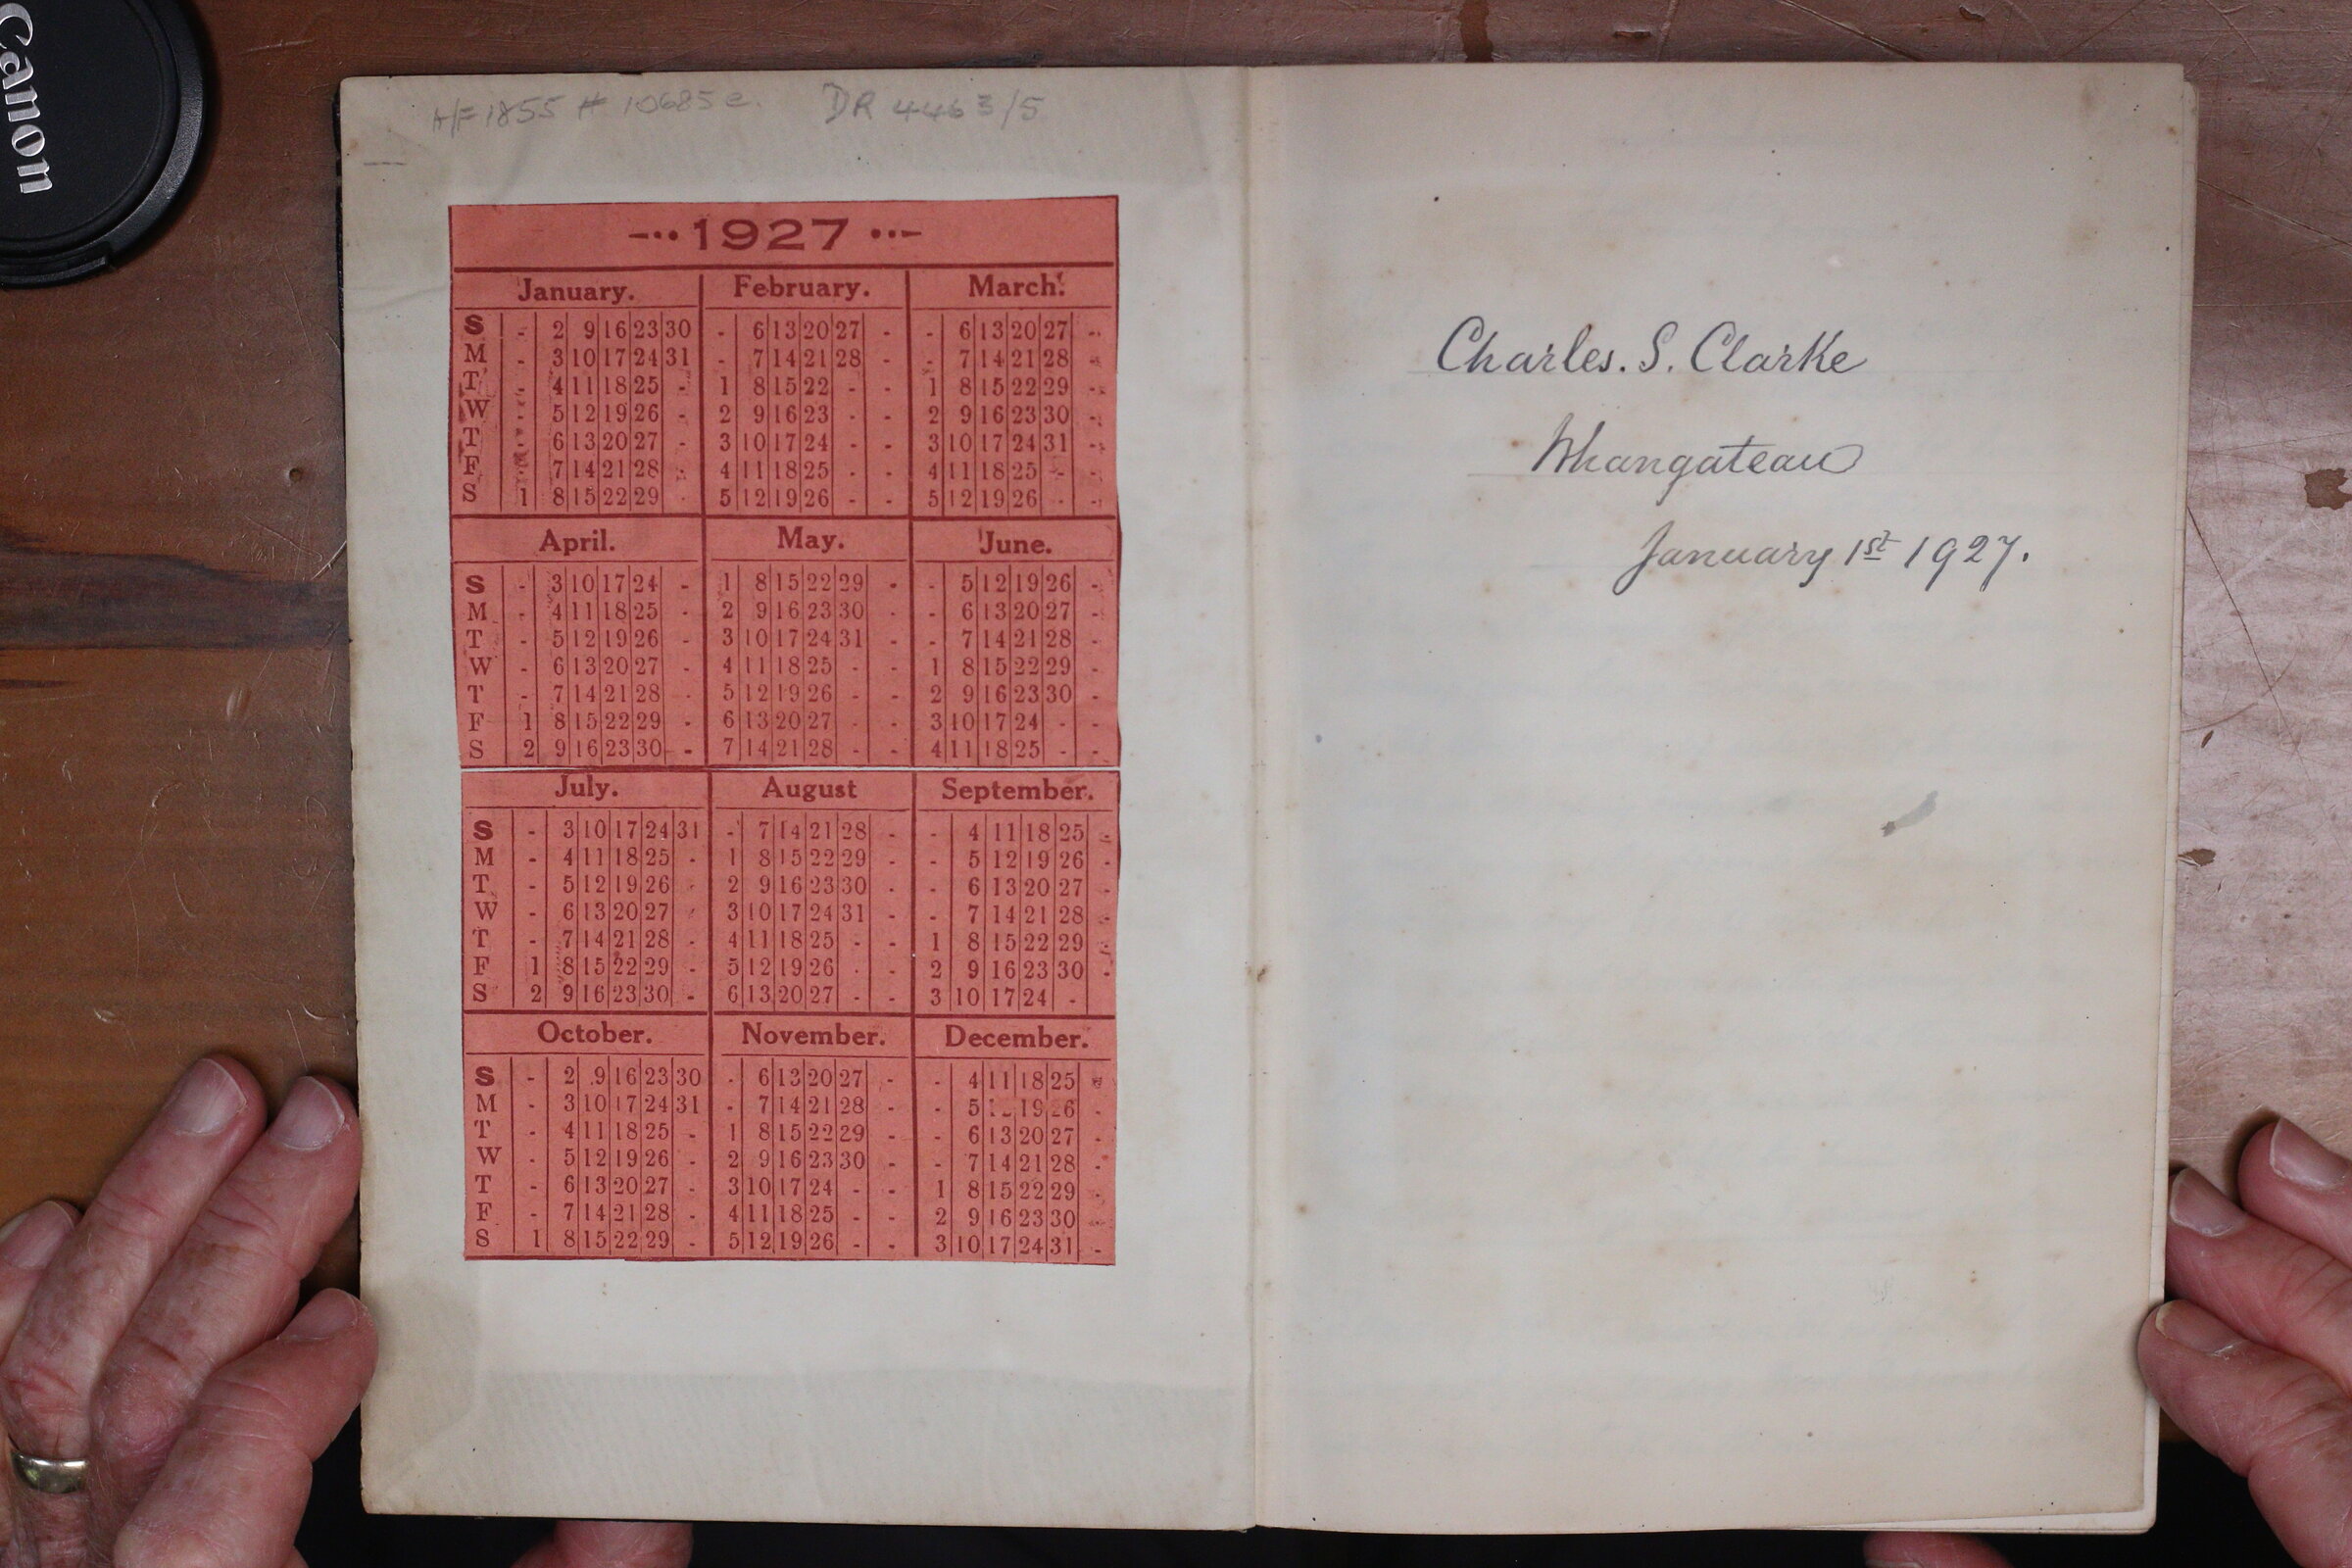 Canon
A/F 1855 # 10685e. DR 4463/5
1927
January. February. March.
S - 2 9 16 23 30 - 6 13 20 27 - - 6 13 20 27 -
M - 3 10 17 24 31 - 7 14 21 28 - - 7 14 21 28 -
T - 4 11 18 25 - 1 8 15 22 - - 1 8 15 22 29 -
W - 5 12 19 26 - 2 9 16 23 - - 2 9 16 23 30 -
T - 6 13 20 27 - 3 10 17 24 - - 3 10 17 24 31 -
F - 7 14 21 28 - 4 11 18 25 - - 4 11 18 25 - -
S 1 8 15 22 29 - 5 12 19 26 - - 5 12 19 26 - -
April. May. June.
S - 3 10 17 24 - 1 8 15 22 29 - - 5 12 19 26 -
M - 4 11 18 25 - 2 9 16 23 30 - - 6 13 20 27 -
T - 5 12 19 26 - 3 10 17 24 31 - - 7 14 21 28 -
W - 6 13 20 27 - 4 11 18 25 - - 1 8 15 22 29 -
T - 7 14 21 28 - 5 12 19 26 - - 2 9 16 23 30 -
F 1 8 15 22 29 - 6 13 20 27 - - 3 10 17 24 - -
S 2 9 16 23 30 - 7 14 21 28 - - 4 11 18 25 - -
July. August September.
S - 3 10 17 24 31 - 7 14 21 28 - - 4 11 18 25 -
M - 4 11 18 25 - 1 8 15 22 29 - - 5 12 19 26 -
T - 5 12 19 26 - 2 9 16 23 30 - - 6 13 20 27 -
W - 6 13 20 27 - 3 10 17 24 31 - - 7 14 21 28 -
T - 7 14 21 28 - 4 11 18 25 - - 1 8 15 22 29 -
F 1 8 15 22 29 - 5 12 19 26 - - 2 9 16 23 30 -
S 2 9 16 23 30 - 6 13 20 27 - - 3 10 17 24 -
October. November. December.
S - 2 9 16 23 30 - 6 13 20 27 - - 4 11 18 25
M - 3 10 17 24 31 - 7 14 21 28 - - 5 19 26 -
T - 4 11 18 25 - 1 8 15 22 29 - - 6 13 20 27 -
W - 5 12 19 26 - 2 9 16 23 30 - - 7 14 21 28 -
T - 6 13 20 27 - 3 10 17 24 - - 1 8 15 22 29 -
F - 7 14 21 28 - 4 11 18 25 - - 2 9 16 23 30 -
S 1 8 15 22 29 - 5 12 19 26 - - 3 10 17 24 31 -
Charles. S. Clarke
Whangateau
January 1st 1927.